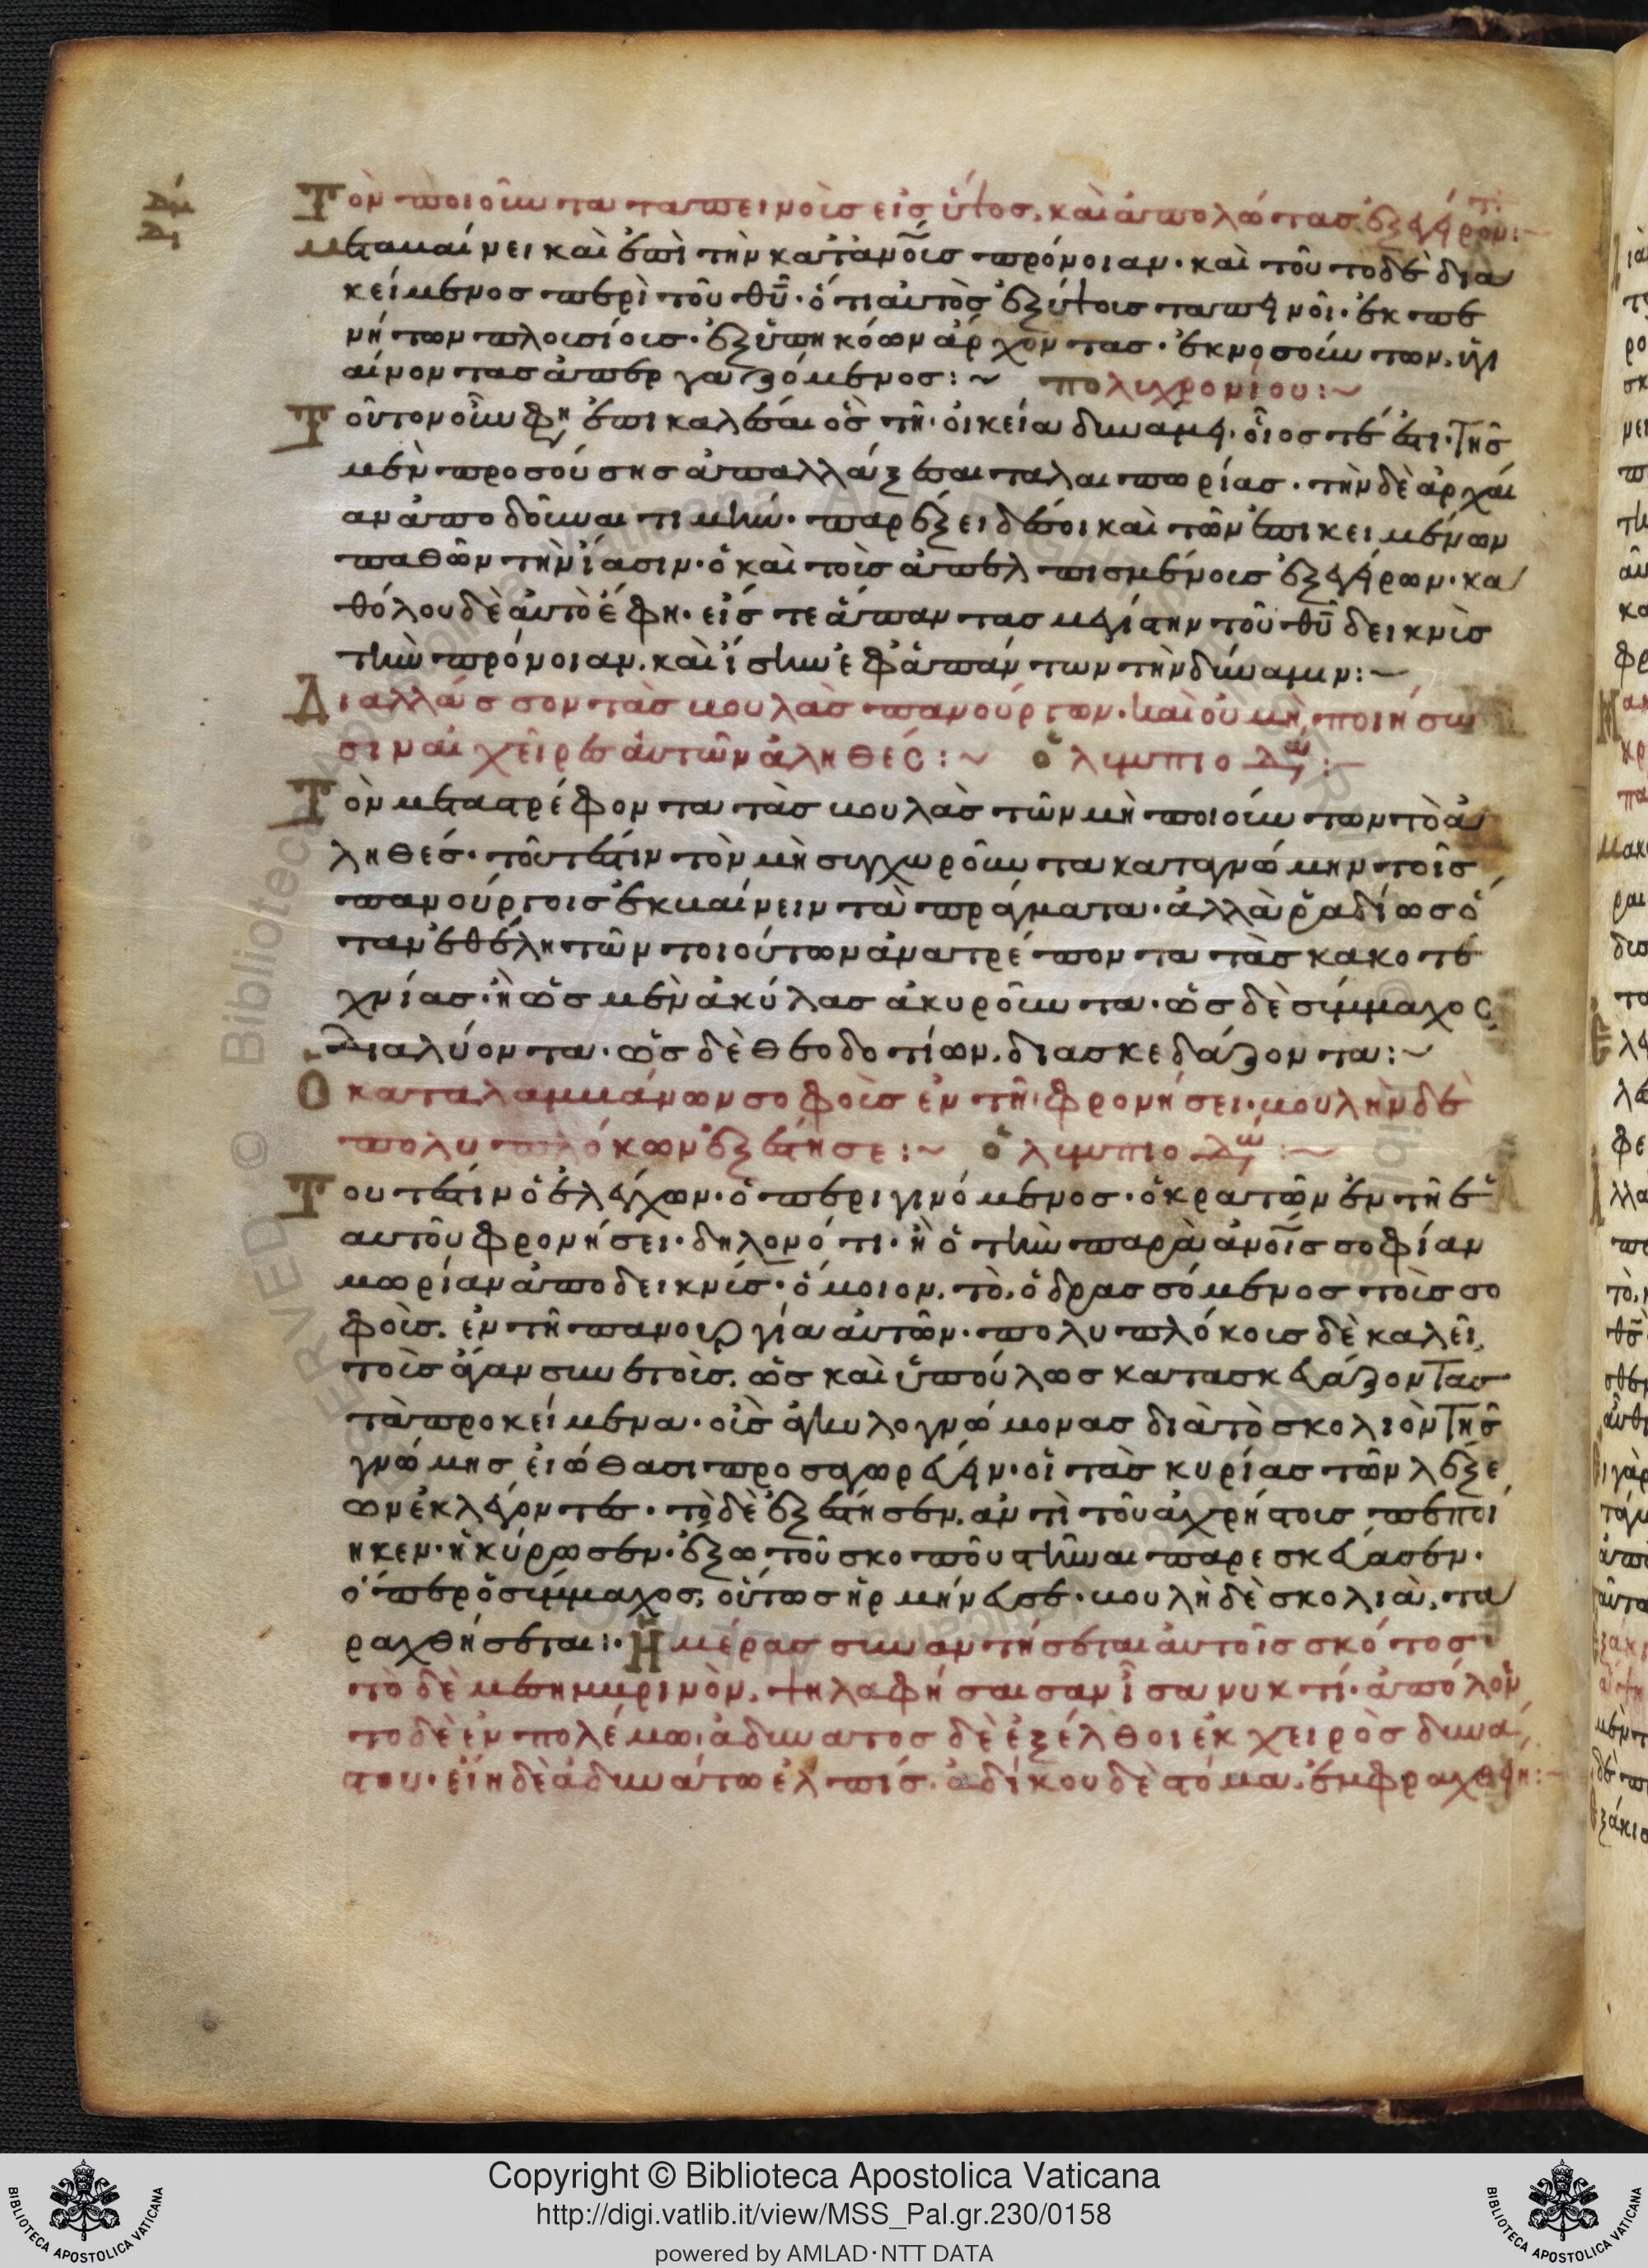 Τὸν ποιοῦντα ταπεινοὺς εἰς ὕψος, καὶ ἀπολωλότας ἐξεγείροντα:
μεταβαίνει καὶ ἐπὶ τὴν κατ' ἀνους πρόνοιαν· καὶ τοῦτο δὲ δια
κείμενος περὶ τοῦ θυ· ὅτι αὐτὸς ἐξ ὕψους ταπεινοῖ· ἐκ πε
νήτων πλουσίους· ἐξ ὑπηκόων ἄρχοντας· ἐκ νοσούντων, ὑγι
αίνοντας ἀπεργαζόμενος:~ πολυχρονίου:~
Τοῦτον οὖν φη ἐπικάλεσαι ὃς τῆ οἰκεία δυνάμει· οἷός τέ ἐστι· τῆς
μὲν προσούσης ἀπαλλάξαι ταλαιπωρίας· τὴν δὲ ἀρχαί
αν ἀποδοῦναι τιμήν· παρέξει δέ σοι καὶ τῶν ἐπικειμένων
παθῶν τὴν ἴασιν· ὁ καὶ τοὺς ἀπελπισμένους ἐξεγείρων· κα
θόλου δὲ αὐτὸ ἔφη· εἴς τε ἅπαντας μεγίστην τοῦ θυ δεικνὺς
τὴν πρόνοιαν, καὶ ἴσην ἐφ' ἁπάντων τὴν δύναμιν:~
Διαλλάσσοντας βουλὰς πανούργων· καὶ οὐ μὴ ποιήσω
σιν αἱ χεῖρες αὐτῶν ἀληθές:~ ὀλυμπιοδώ:~
Τὸν μεταστρέφοντα τὰς βουλὰς τῶν μὴ ποιούντων τὸ ἀ
ληθές· τουτέστιν τὸν μὴ συγχωροῦντα κατὰ γνώμην τοῖς
πανούργοις ἐκβαίνειν τὰ πράγματα· ἀλλὰ ῥαδίως ὅ
ταν ἐθέλη τῶν τοιούτων ἀνατρέποντα τὰς κακοτε
χνίας· ἢ ὡς μὲν ἀκύλας ἀκυροῦντα· ὡς δὲ σύμμαχος
διαλύοντα· ὡς δὲ θεοδοτίων, διασκεδάζοντα:~
Ὁ καταλαμβάνων σοφοὺς ἐν τῆ φρονήσει· βουλὴν δὲ
πολυπλόκων ἐξέστησε:~ ὀλυμπιοδώ:~
Τουτέστιν ὁ ἐλέγχων· ὁ περιγινόμενος· ὁ κρατῶν ἐν τῆ ἑ
αυτοῦ φρονήσει· δηλονότι· ἢ ὁ τὴν παρὰ ἀνοις σοφίαν
μωρίαν ἀποδεικνύς· ὅμοιον, τὸ, ὁ δρασσόμενος τοὺς σο
φοὺς, ἐν τῆ πανουργία αὐτῶν· πολυπλόκους δὲ καλεῖ,
τοὺς ἄγαν συνετοὺς, ὡς καὶ ὑπούλως κατασκευάζοντας
τὰ προκείμενα· οὓς ἀγκυλογνώμονας διὰ τὸ σκολιὸν τῆς
γνώμης εἰώθασι προσαγορεύειν· οἱ τὰς κυρίας τῶν λέξε
ων ἐκλέγοντες· τὸ δὲ ἐξέστησεν, ἀντὶ τοῦ ἀχρήστους πεποί
ηκεν· ἢ κύρωσεν· ἔξω τοῦ σκοποῦ στῆναι παρεσκεύασεν·
ὅπερ ὁ σύμμαχος, οὕτως ἡρμήνευσε· βουλὴ δὲ σκολιὰ, τα
ραχθήσεται:· Ἡμέρας συναντήσεται αὐτοῖς σκότος·
τὸ δὲ μεσημβρινὸν, ψηλαφήσαισαν ἴσα νυκτί· ἀπόλοιν
το δὲ ἐν πολέμω· ἀδύνατος δὲ ἐξέλθοι ἐκ χειρὸς δυνά
στου· εἴη δὲ ἀδυνάτω ἐλπίς· ἀδίκου δὲ στόμα, ἐμφραχθείη:~
Copyright © Biblioteca Apostolica Vaticana
http://digi.vatlib.it/view/MSS_Pal.gr.230/0158
powered by AMLAD·NTT DATA
BIBLIOTECA APOSTOLICA VATICANA
BIBLIOTECA APOSTOLICA VATICANA